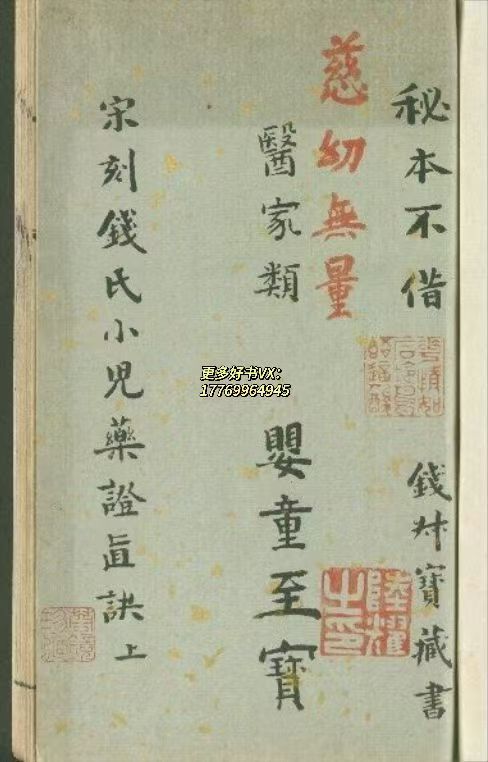 秘本不借
錢叔寶藏書
慈幼無量
醫家類
嬰童至寶
宋刻錢氏小兒藥證直訣上
陸耀之印
更多好书VX:
17769964945